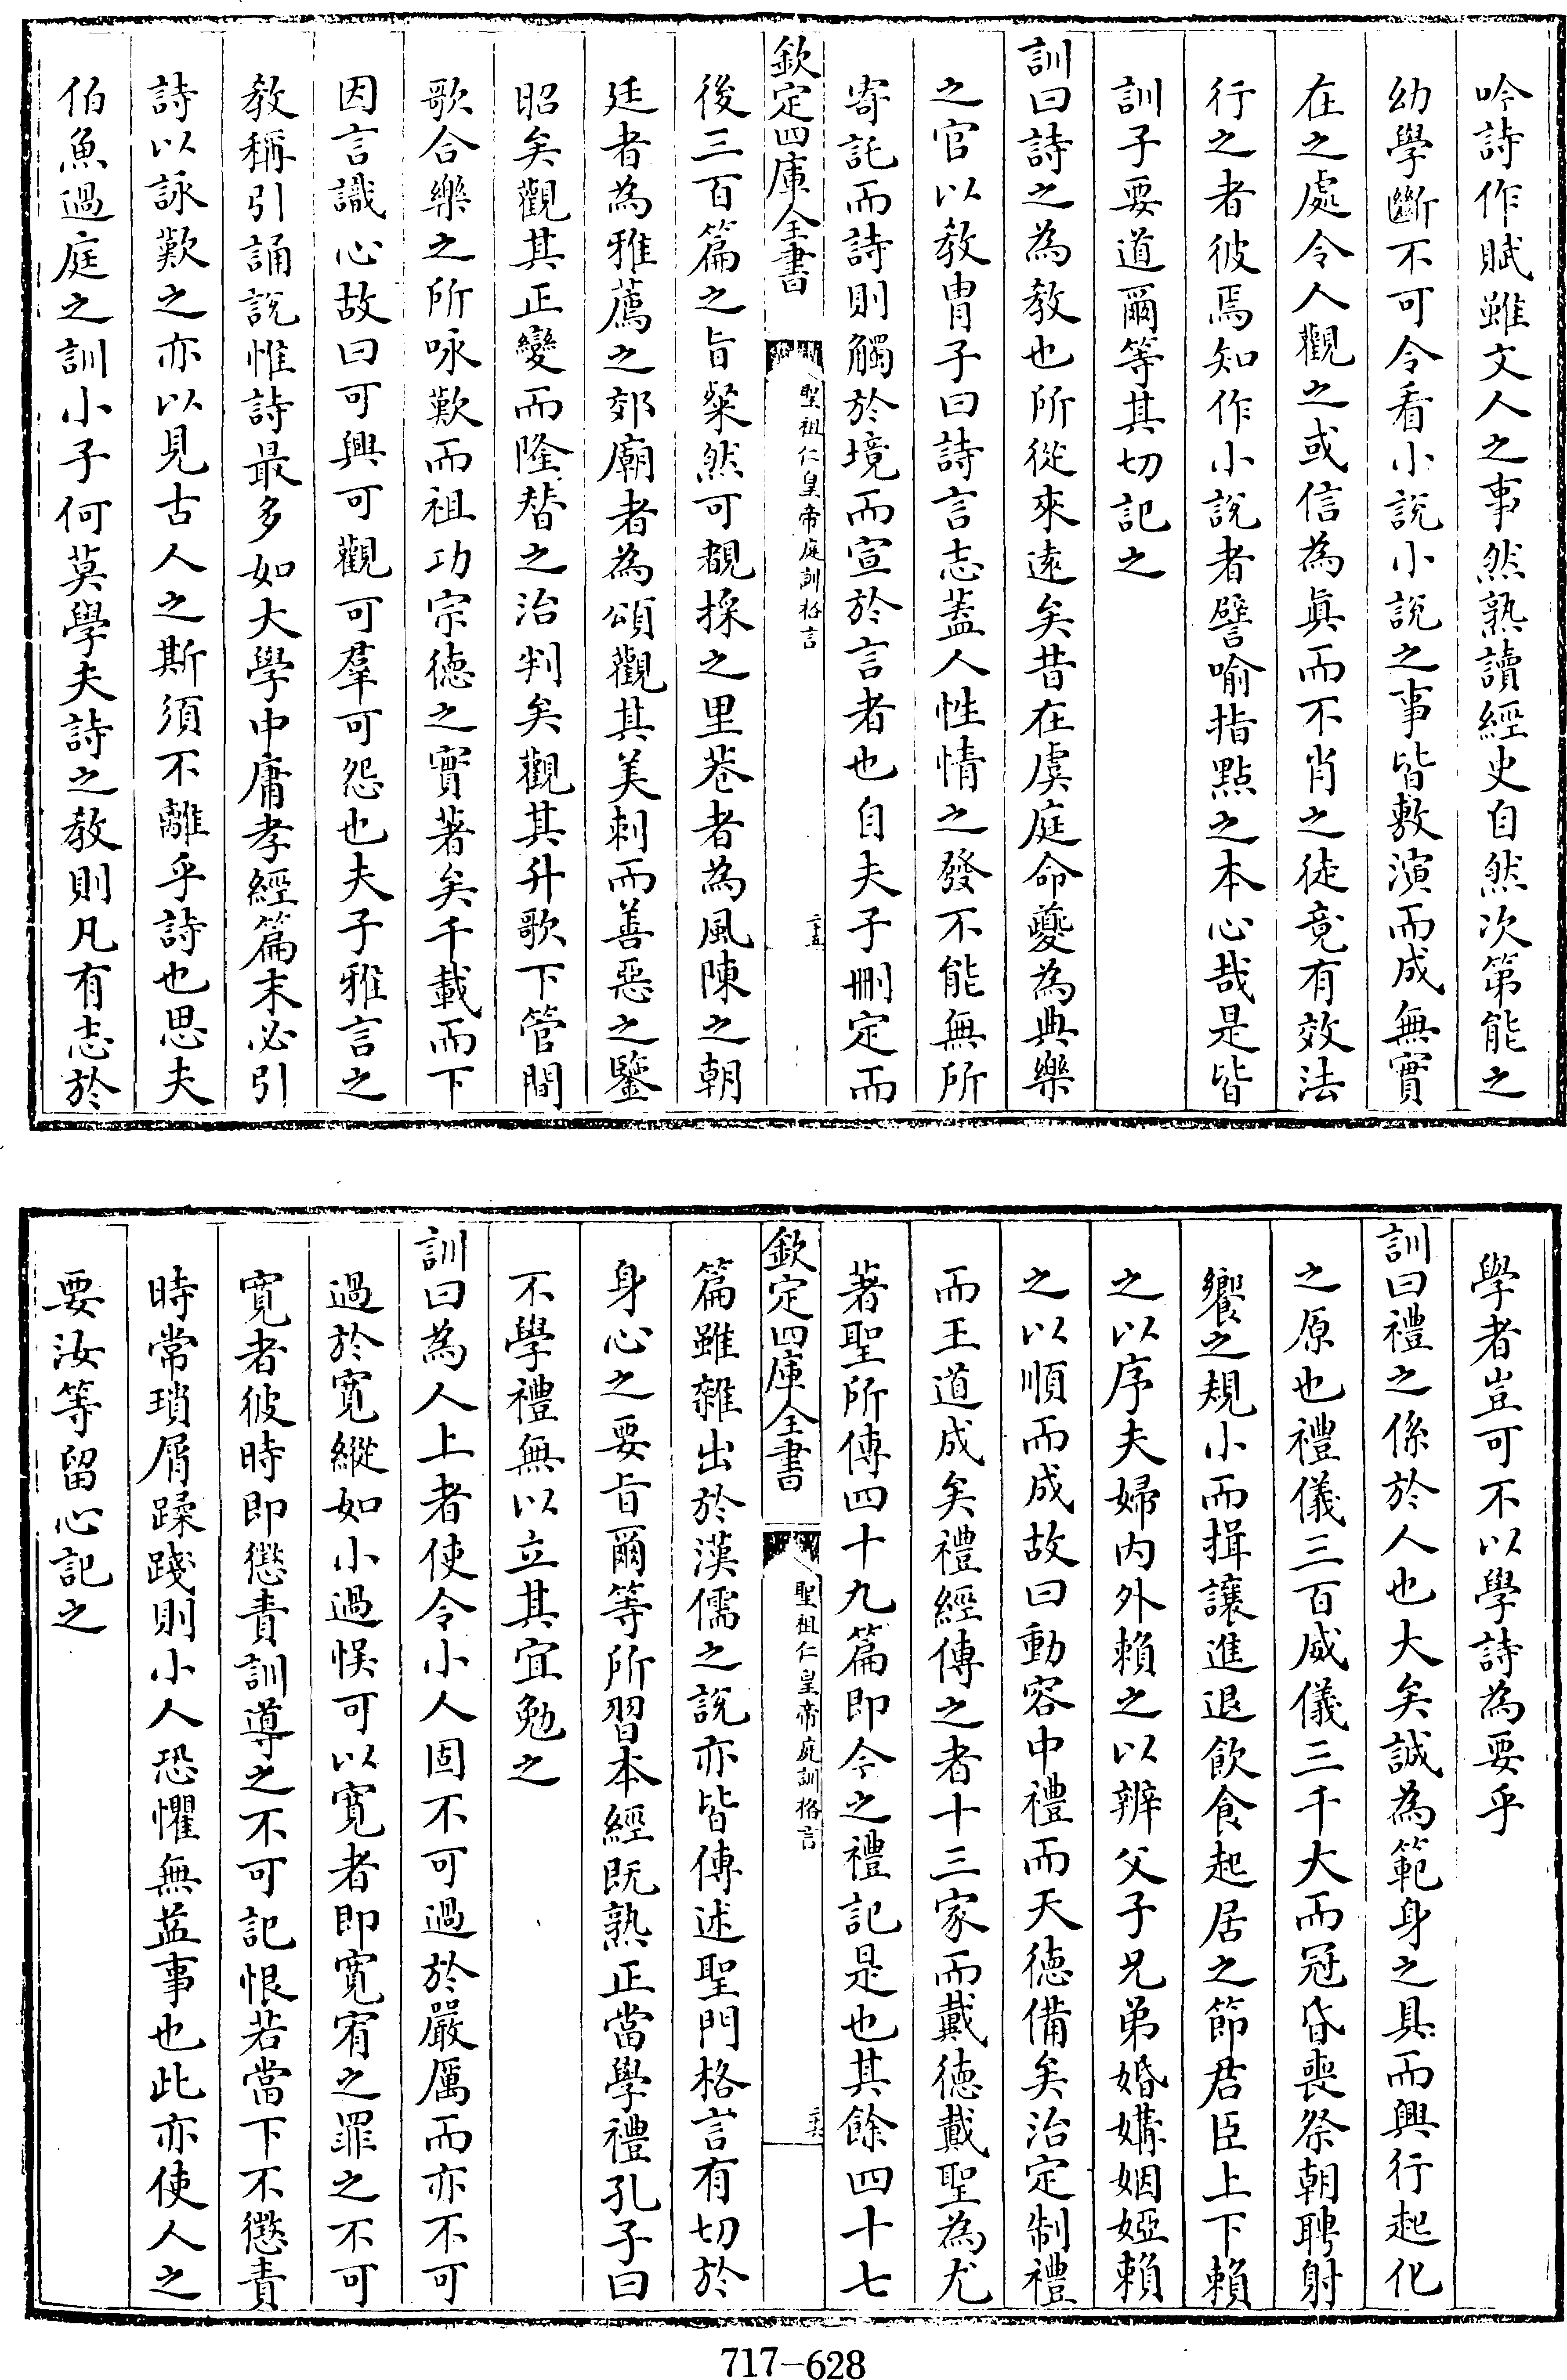 吟詩作賦雖文人之事然熟讀經史自然次第能之
幼學斷不可令看小説小説之事皆敷演而成無實
在之處令人觀之或信為眞而不肖之徒竟有效法
行之者彼焉知作小説者譬喻指點之本心哉是皆
訓子要道爾等其切記之
訓曰詩之為教也所從來遠矣昔在虞庭命夔為典樂
之官以教胄子曰詩言志蓋人性情之發不能無所
寄託而詩則觸於境而宣於言者也自夫子刪定而
欽定四庫全書
聖祖仁皇帝庭訓格言
二十五
後三百篇之旨粲然可覩採之里巷者為風陳之朝
廷者為雅薦之郊廟者為頌觀其美刺而善惡之鑒
昭矣觀其正變而隆替之治判矣觀其升歌下管間
歌合樂之所咏歎而祖功宗德之實著矣千載而下
因言識心故曰可興可觀可羣可怨也夫子雅言之
教稱引誦説惟詩最多如大學中庸孝經篇末必引
詩以詠歎之亦以見古人之斯須不離乎詩也思夫
伯魚過庭之訓小子何莫學夫詩之教則凡有志於
學者豈可不以學詩為要乎
訓曰禮之係於人也大矣誠為範身之具而興行起化
之原也禮儀三百威儀三千大而冠昏喪祭朝聘射
饗之規小而揖讓進退飲食起居之節君臣上下賴
之以序夫婦内外賴之以辨父子兄弟婚媾姻婭賴
之以順而成故曰動容中禮而天德備矣治定制禮
而王道成矣禮經傳之者十三家而戴德戴聖為尤
著聖所傳四十九篇即今之禮記是也其餘四十七
欽定四庫全書
聖祖仁皇帝庭訓格言
二十六
篇雖雜出於漢儒之説亦皆傳述聖門格言有切於
身心之要旨爾等所習本經既熟正當學禮孔子曰
不學禮無以立其宜勉之
訓曰為人上者使令小人固不可過於嚴厲而亦不可
過於寛縱如小過悞可以寛者即寛宥之罪之不可
寛者彼時即懲責訓導之不可記恨若當下不懲責
時常瑣屑蹂踐則小人恐懼無益事也此亦使人之
要汝等留心記之
717-628